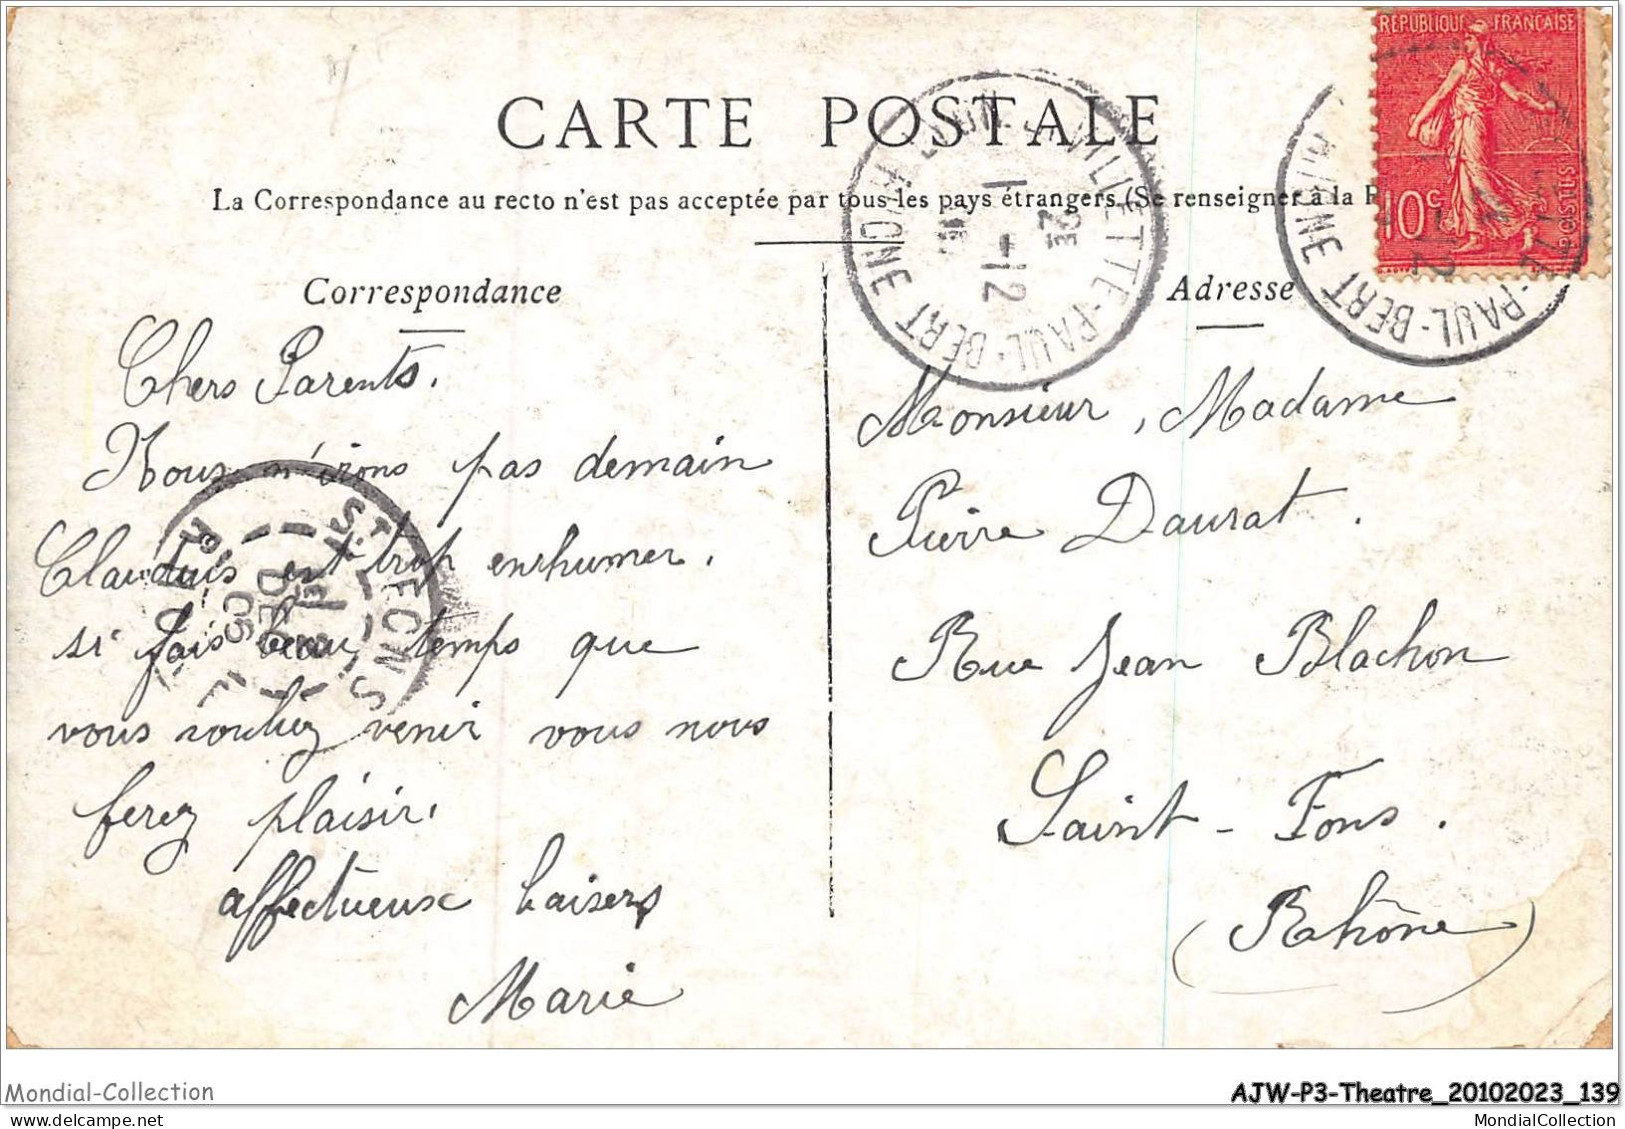 CARTE POSTALE
La Correspondance au recto n'est pas acceptée par tous les pays étrangers (Se renseigner à la
RÉPUBLIQUE FRANÇAISE
10c
POSTES
VILLETTE-PAUL-BERT
1-12
Correspondance
Chers Parents.
Nous n'irons pas demain
Claudius est trop enrhumer.
si fais beau temps que
vous vouliez venir vous nous
ferez plaisir.
affectueux baisers
Marie
Adresse
Monsieur, Madame
Pierre Daurat.
Rue Jean Blachon
Saint-Fons.
(Rhône)
Mondial-Collection
AJW-P3-Theatre_20102023_139
MondialCollection